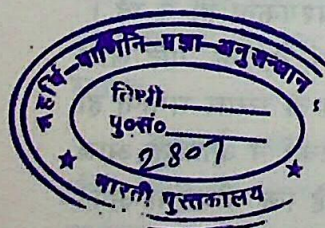 महर्षि-पाणिनि-प्रज्ञा-अनुसन्धान
तिथी
पु०सं०
2807
भारती पुस्तकालय